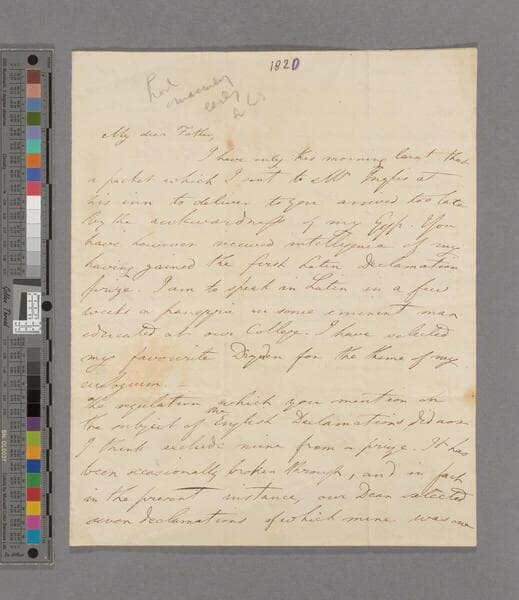 1820
Prof
Macaulay
early
ALS
My dear Father,
I have only this morning learnt that
a packet which I sent to Mr Inglis at
his inn to deliver to you arrived too late
by the awkwardness of my Gyp. You
have however received intelligence of my
having gained the first Latin Declamation
prize. I am to speak in Latin in a few
weeks a panegyric on some eminent man
educated at our College. I have selected
my favourite Dryden for the theme of my
The regulation which you mention on
the subject of the English Declamations did not
I think exclude mine from a prize. It has
been occasionally broken through, and in fact
in the present instance, our Dean selected
seven declamations of which mine was one